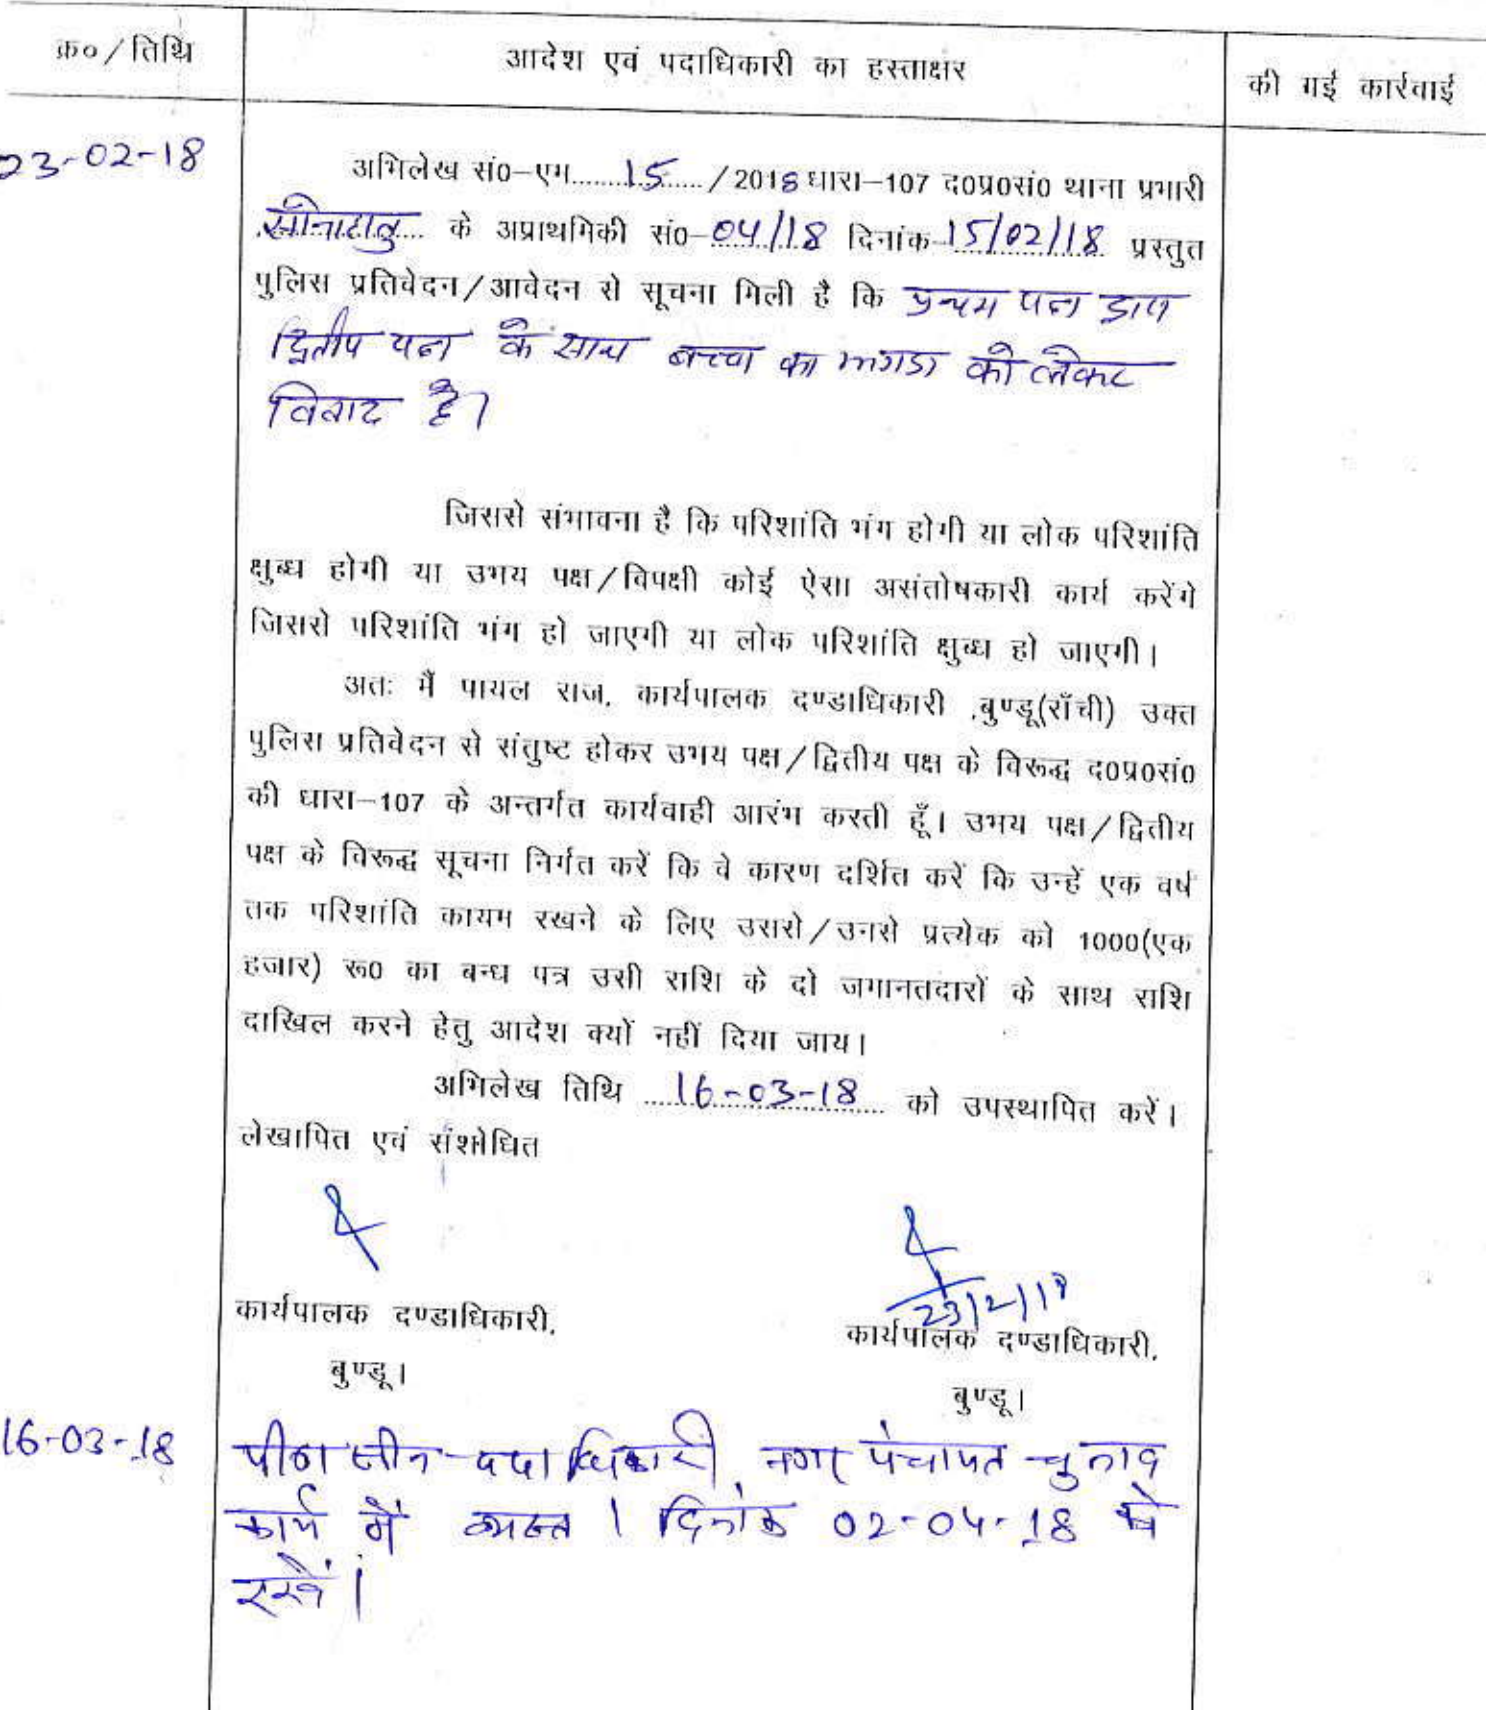 क्र० / तिथि
आदेश एवं पदाधिकारी का हस्ताक्षर
की गई कार्रवाई
23-02-18
अभिलेख सं०-एम.........15....... / 2018 धारा-107 द०प्र०सं० थाना प्रभारी
सोनाहातु.... के अप्राथमिकी सं०-04/18 दिनांक-15/02/18 प्रस्तुत
पुलिस प्रतिवेदन / आवेदन से सूचना मिली है कि प्रथम पक्ष द्वारा
द्वितीय पक्ष के साथ बच्चा का झगडा को लेकर
विवाद है।
जिससे संभावना है कि परिशांति भंग होगी या लोक परिशांति
क्षुब्ध होगी या उभय पक्ष / विपक्षी कोई ऐसा असंतोषकारी कार्य करेंगे
जिससे परिशांति भंग हो जाएगी या लोक परिशांति क्षुब्ध हो जाएगी।
अतः मैं पायल राज, कार्यपालक दण्डाधिकारी ,बुण्डू(राँची) उक्त
पुलिस प्रतिवेदन से संतुष्ट होकर उभय पक्ष / द्वितीय पक्ष के विरूद्ध द०प्र०सं०
की धारा-107 के अन्तर्गत कार्यवाही आरंभ करती हूँ। उभय पक्ष / द्वितीय
पक्ष के विरूद्ध सूचना निर्गत करें कि वे कारण दर्शित करें कि उन्हें एक वर्ष
तक परिशांति कायम रखने के लिए उससे / उनसे प्रत्येक को 1000(एक
हजार) रू० का बन्ध पत्र उसी राशि के दो जमानतदारों के साथ राशि
दाखिल करने हेतु आदेश क्यों नहीं दिया जाय।
अभिलेख तिथि ....16-03-18.... को उपस्थापित करें।
लेखापित एवं संशोधित
23/2/18
कार्यपालक दण्डाधिकारी,
कार्यपालक दण्डाधिकारी,
बुण्डू।
बुण्डू।
16-03-18
पीठासीन पदाधिकारी नगर पंचायत चुनाव
कार्य में व्यस्त। दिनांक 02-04-18 को
रखें।